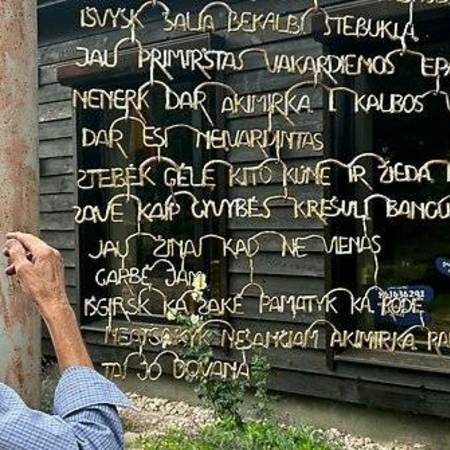 IŠVYSK ŠALIA BEKALBI STEBUKLĄ
JAU PRIMIRŠTAS VAKARDIENOS
NENERK DAR AKIMIRKĄ Į KALBOS
DAR ESI NEIVARDINTAS
STEBĖK GĖLĘ KITO KŪNE IR ŽIEDĄ
SAVĘ KAIP GYVYBĖS KREŠULĮ
JAU ŽINAI KAD NE VIENAS
GARBĖ JAM
IŠGIRSK KĄ SAKĖ PAMATYK KĄ RODĖ
NEATSAKYK NEŠANČIAM AKIMIRKĄ
TAI JO DOVANA